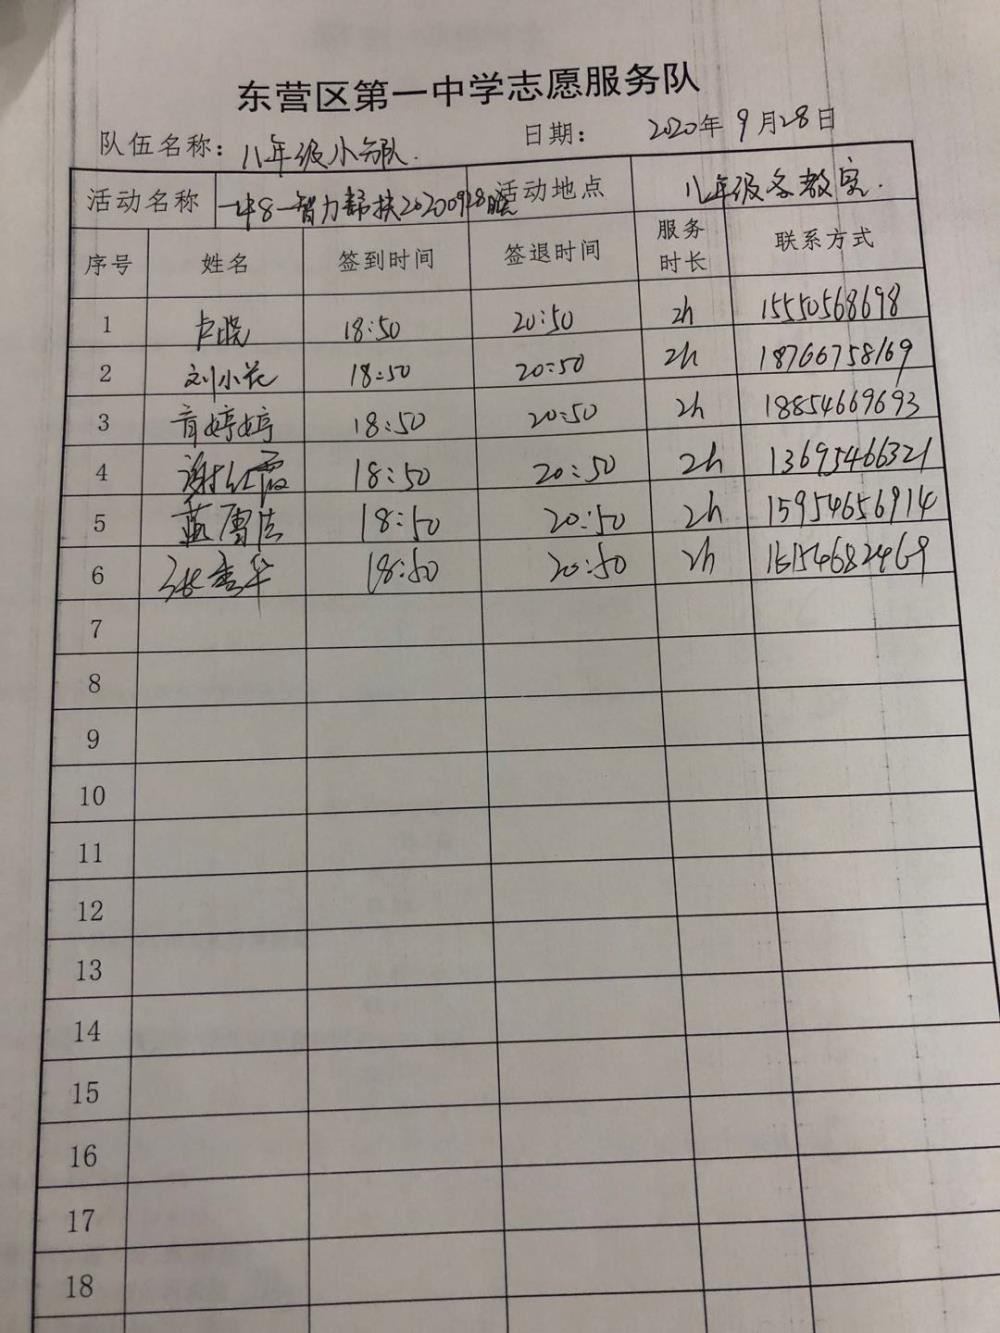 东营区第一中学志愿服务队
队伍名称：八年级小分队. 日期： 2020年9月28日
活动名称 一中8一智力帮扶20200928晚 活动地点 八年级各教室.
序号 姓名 签到时间 签退时间 服务时长 联系方式
1 卢晓 18:50 20:50 2h 15550568698
2 刘小花 18:50 20:50 2h 18766758169
3 婷婷 18:50 20:50 2h 18854669693
4 谢红霞 18:50 20:50 2h 13695466321
5 蓝雪洁 18:50 20:50 2h 15954656914
6 张秀华 18:50 20:50 2h
7
8
9
10
11
12
13
14
15
16
17
18